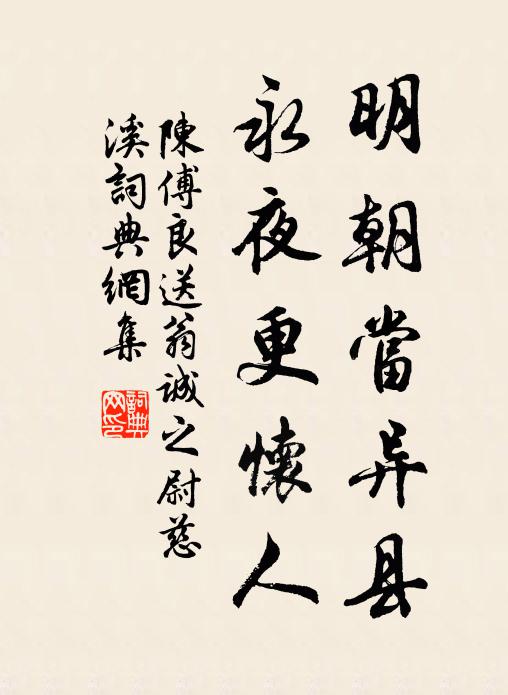 明朝當异县
永夜更懷人
陳傅良送翁誠之尉慈
溪詞典網集
詞典网印